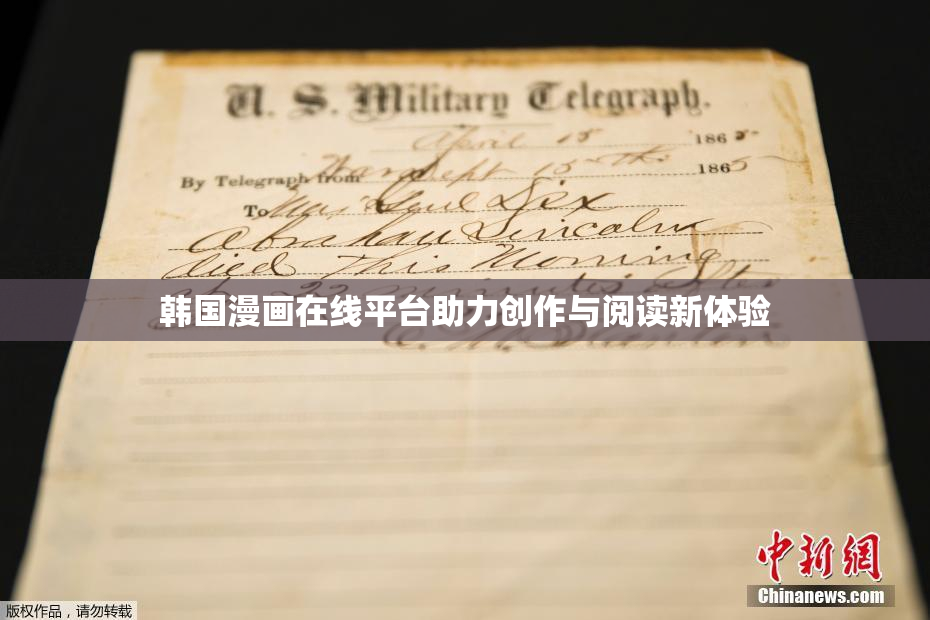 U. S. Military Telegraph.
April 15 1865
By Telegraph from War Dept 15th 1865
To Maj Genl Dix
Abraham Lincoln
died This Morning
at 22 minutes after
韩国漫画在线平台助力创作与阅读新体验
E. M. Stanton
中新網
Chinanews.com
版权作品，请勿转载